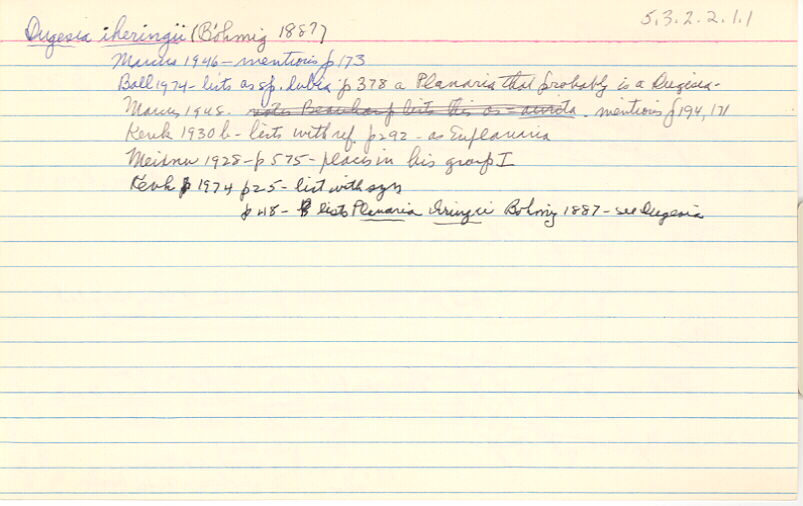 5.3.2.2.1.1
Dugesia iheringii (Böhmig 1887)
Marcus 1946 - mentions p 173
Ball 1974 - lists as sp. dubia p 378 a Planaria that probably is a Dugesia -
Marcus 1948. notes Beauchamp lists this as = aurita. mentions p 194, 171
Kenk 1930 b - lists with ref. p 292 - as Euplanaria
Meixner 1928 - p 575 - places in his group I
Kenk 1974 p 25 - list with syn
p 48 - lists Planaria iringii Bohmig 1887 - see Dugesia